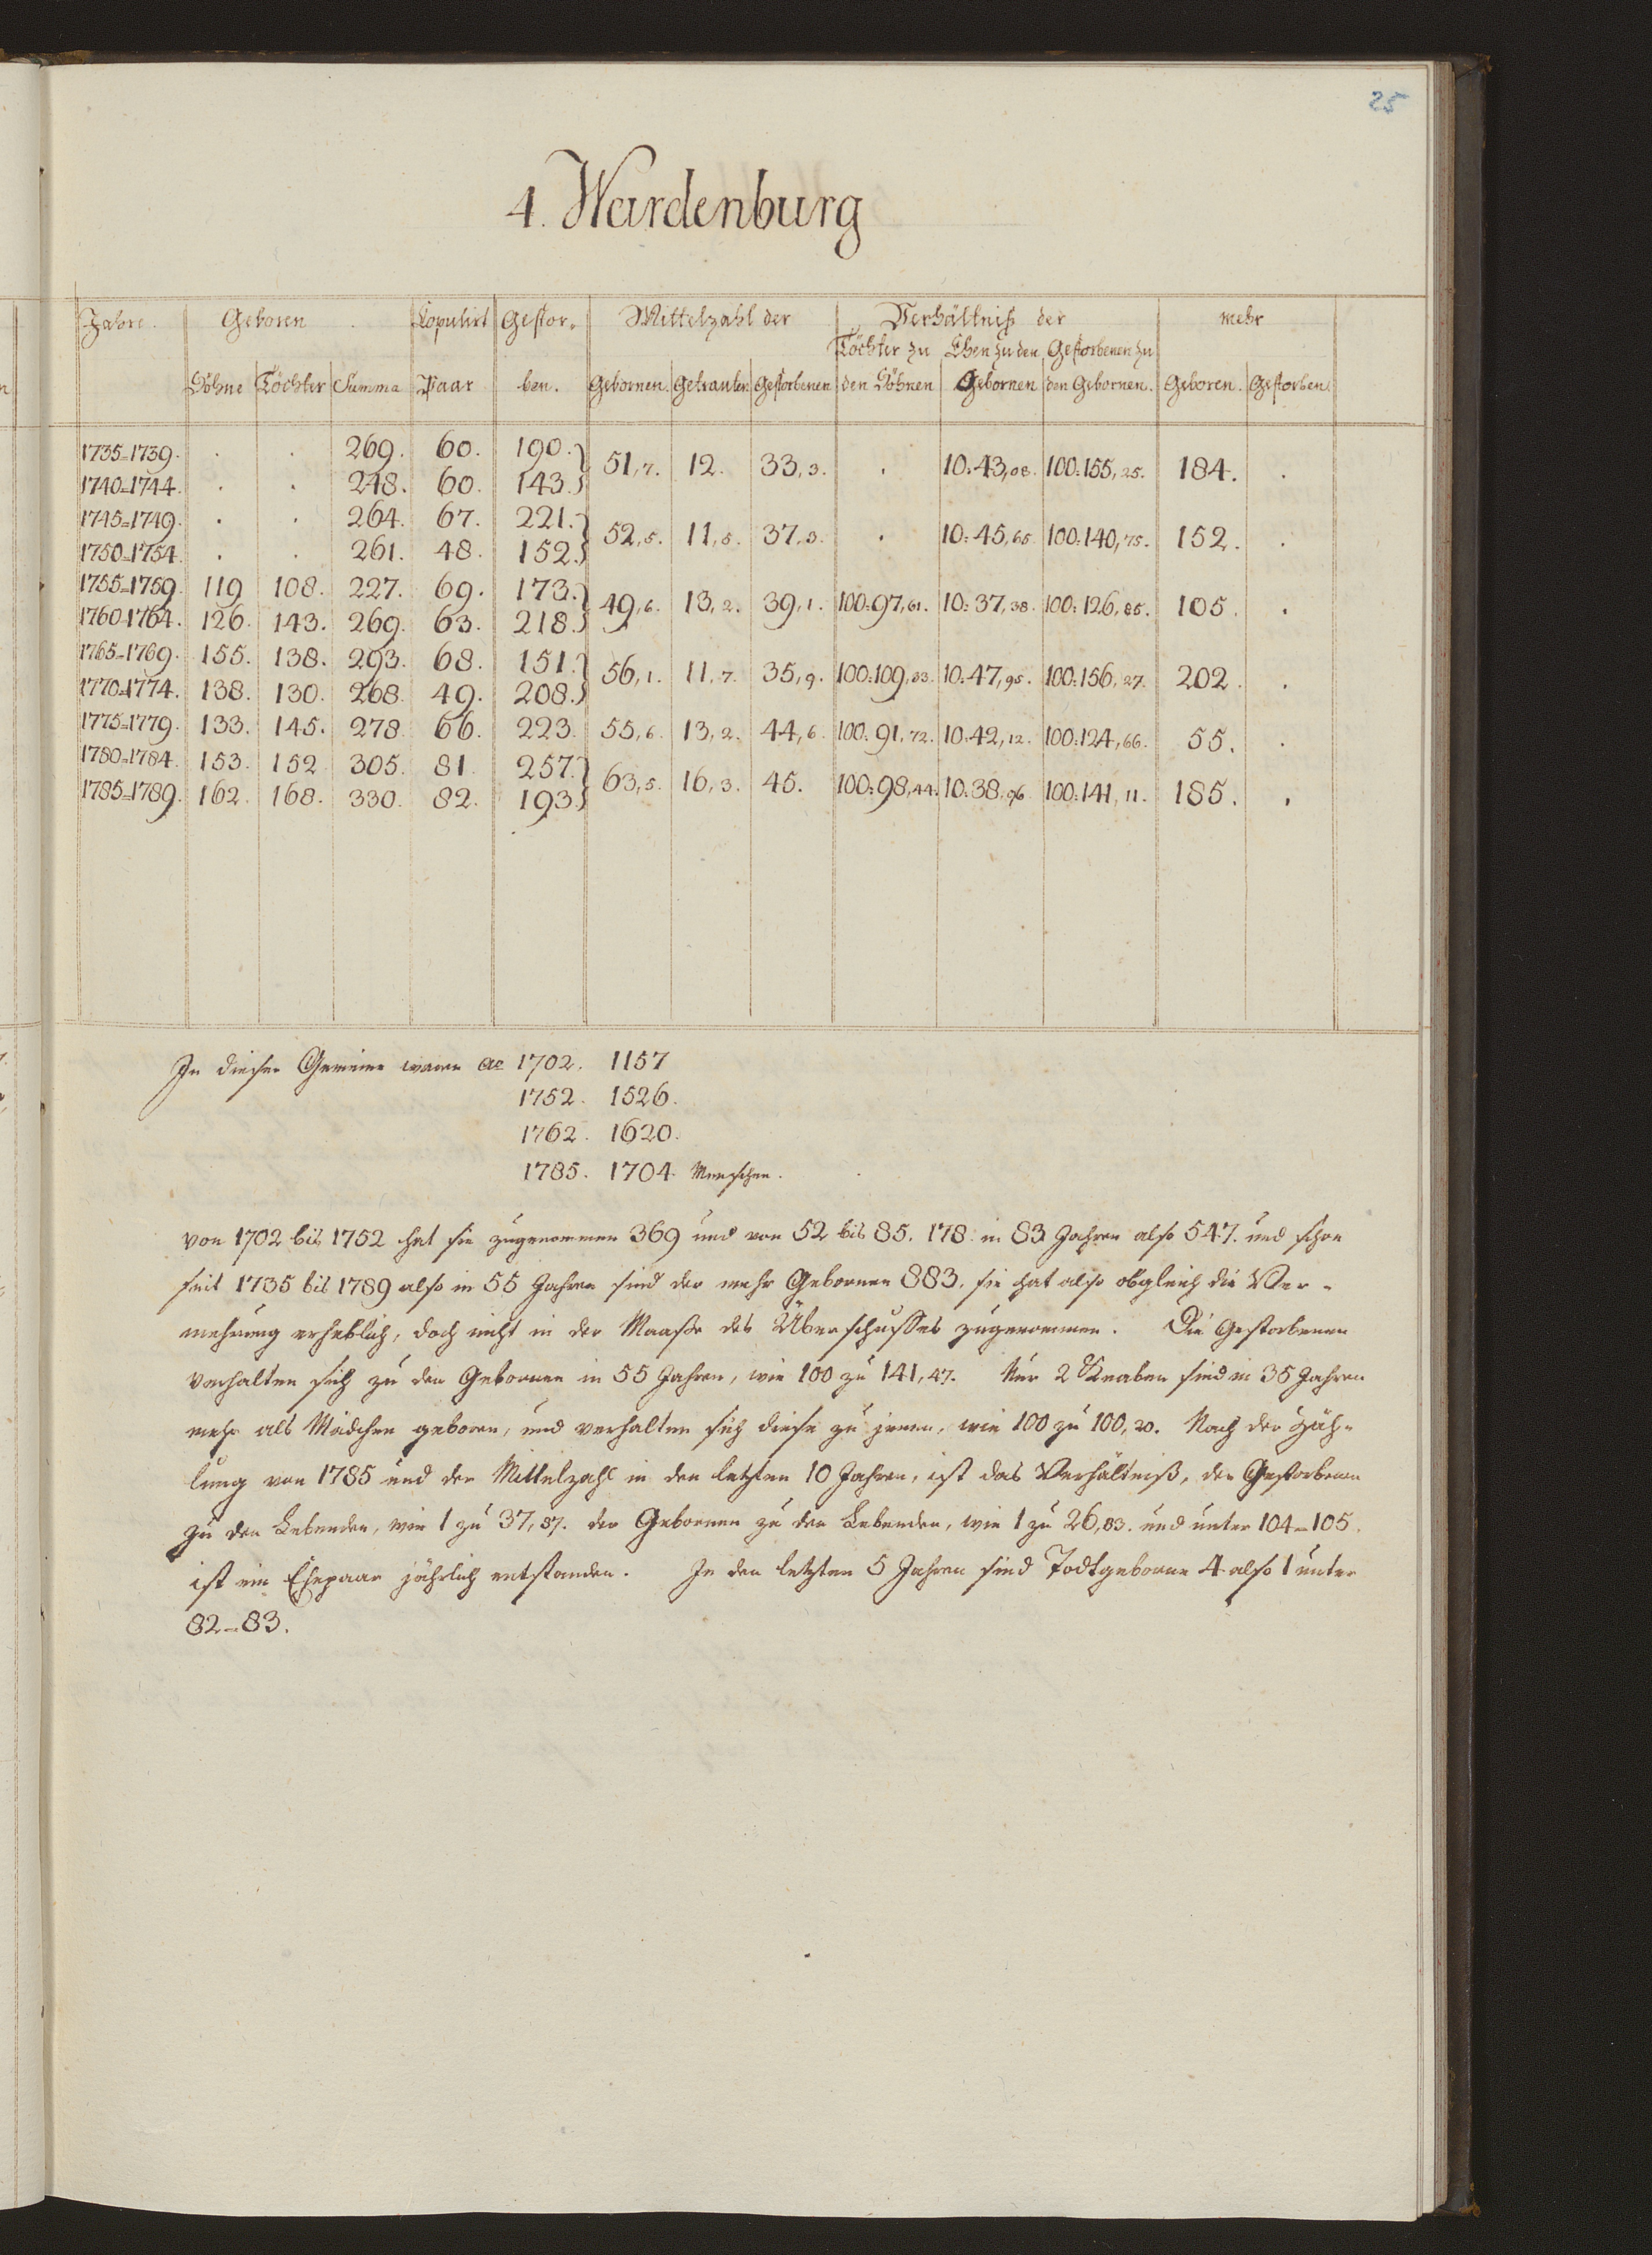 25
4. Wardenburg
Jahre. Geboren Kopulirt Gestor- Mittelzahl der Verhältniß der mehr
Töchter zu Ehen zu den Gestorbenen zu
Söhne Töchter Summa Paar ben. Gebornen. Getrauten Gestorbenen den Söhnen Gebornen den Gebornen. Geboren. Gestorben.
1735=1739. . . 269. 60. 190.
51,7. 12. 33,3. . 10:43,08. 100:155,25. 184. .
1740=1744. . . 248. 60. 143.
1745=1749. . . 264. 67. 221.
52,5. 11,5. 37,3. . 10:45,65. 100:140,75. 152. .
1750=1754. . . 261. 48. 152.
1755=1759. 119 108. 227. 69. 173.
49,6. 13,2. 39,1. 100:97,61. 10:37,38. 100:126,85. 105. .
1760=1764. 126. 143. 269. 63. 218.
1765=1769. 155. 138. 293. 68. 151.
56,1. 11,7. 35,9. 100:109,33. 10:47,95. 100:156,27. 202. .
1770=1774. 138. 130. 268. 49. 208.
1775=1779. 133. 145. 278. 66. 223. 55,6. 13,2. 44,6. 100:91,72. 10:42,12. 100:124,66. 55. .
1780=1784. 153. 152 305. 81. 257.
63,5. 16,3. 45. 100:98,44. 10:38,96 100:141,11. 185. .
1785=1789. 162. 168. 330. 82. 193.
In dieser Gemeine waren ao 1702. 1157
1752. 1526.
1762. 1620.
1785. 1704. Menschen.
von 1702 bis 1752 hat sie zugenommen 369 und von 52 bis 85. 178. in 83 Jahren also 547. und schon
seit 1735 bis 1789 also in 55 Jahren sind der mehr Gebornen 883. sie hat also obgleich die Ver-
mehrung erheblich, doch nicht in der Maaße des Überschusses zugenommen. Die Gestorbenen
verhalten sich zu den Gebornen in 55 Jahren, wie 100 zu 141,47. Nur 2 Knaben sind in 35 Jahren
mehr als Mädchen geboren, und verhalten sich diese zu jenen, wie 100 zu 100,20. Nach der Zäh-
lung von 1785 und der Mittelzahl in den letzten 10 Jahren, ist das Verhältniß, der Gestorbenen
zu den Lebenden, wie 1 zu 37,87. der Gebornen zu den Lebenden, wie 1 zu 26,83. und unter 104=105.
ist ein Ehepaar jährlich entstanden. In den letzten 5 Jahren sind Todtgeborne 4 also 1 unter
82=83.